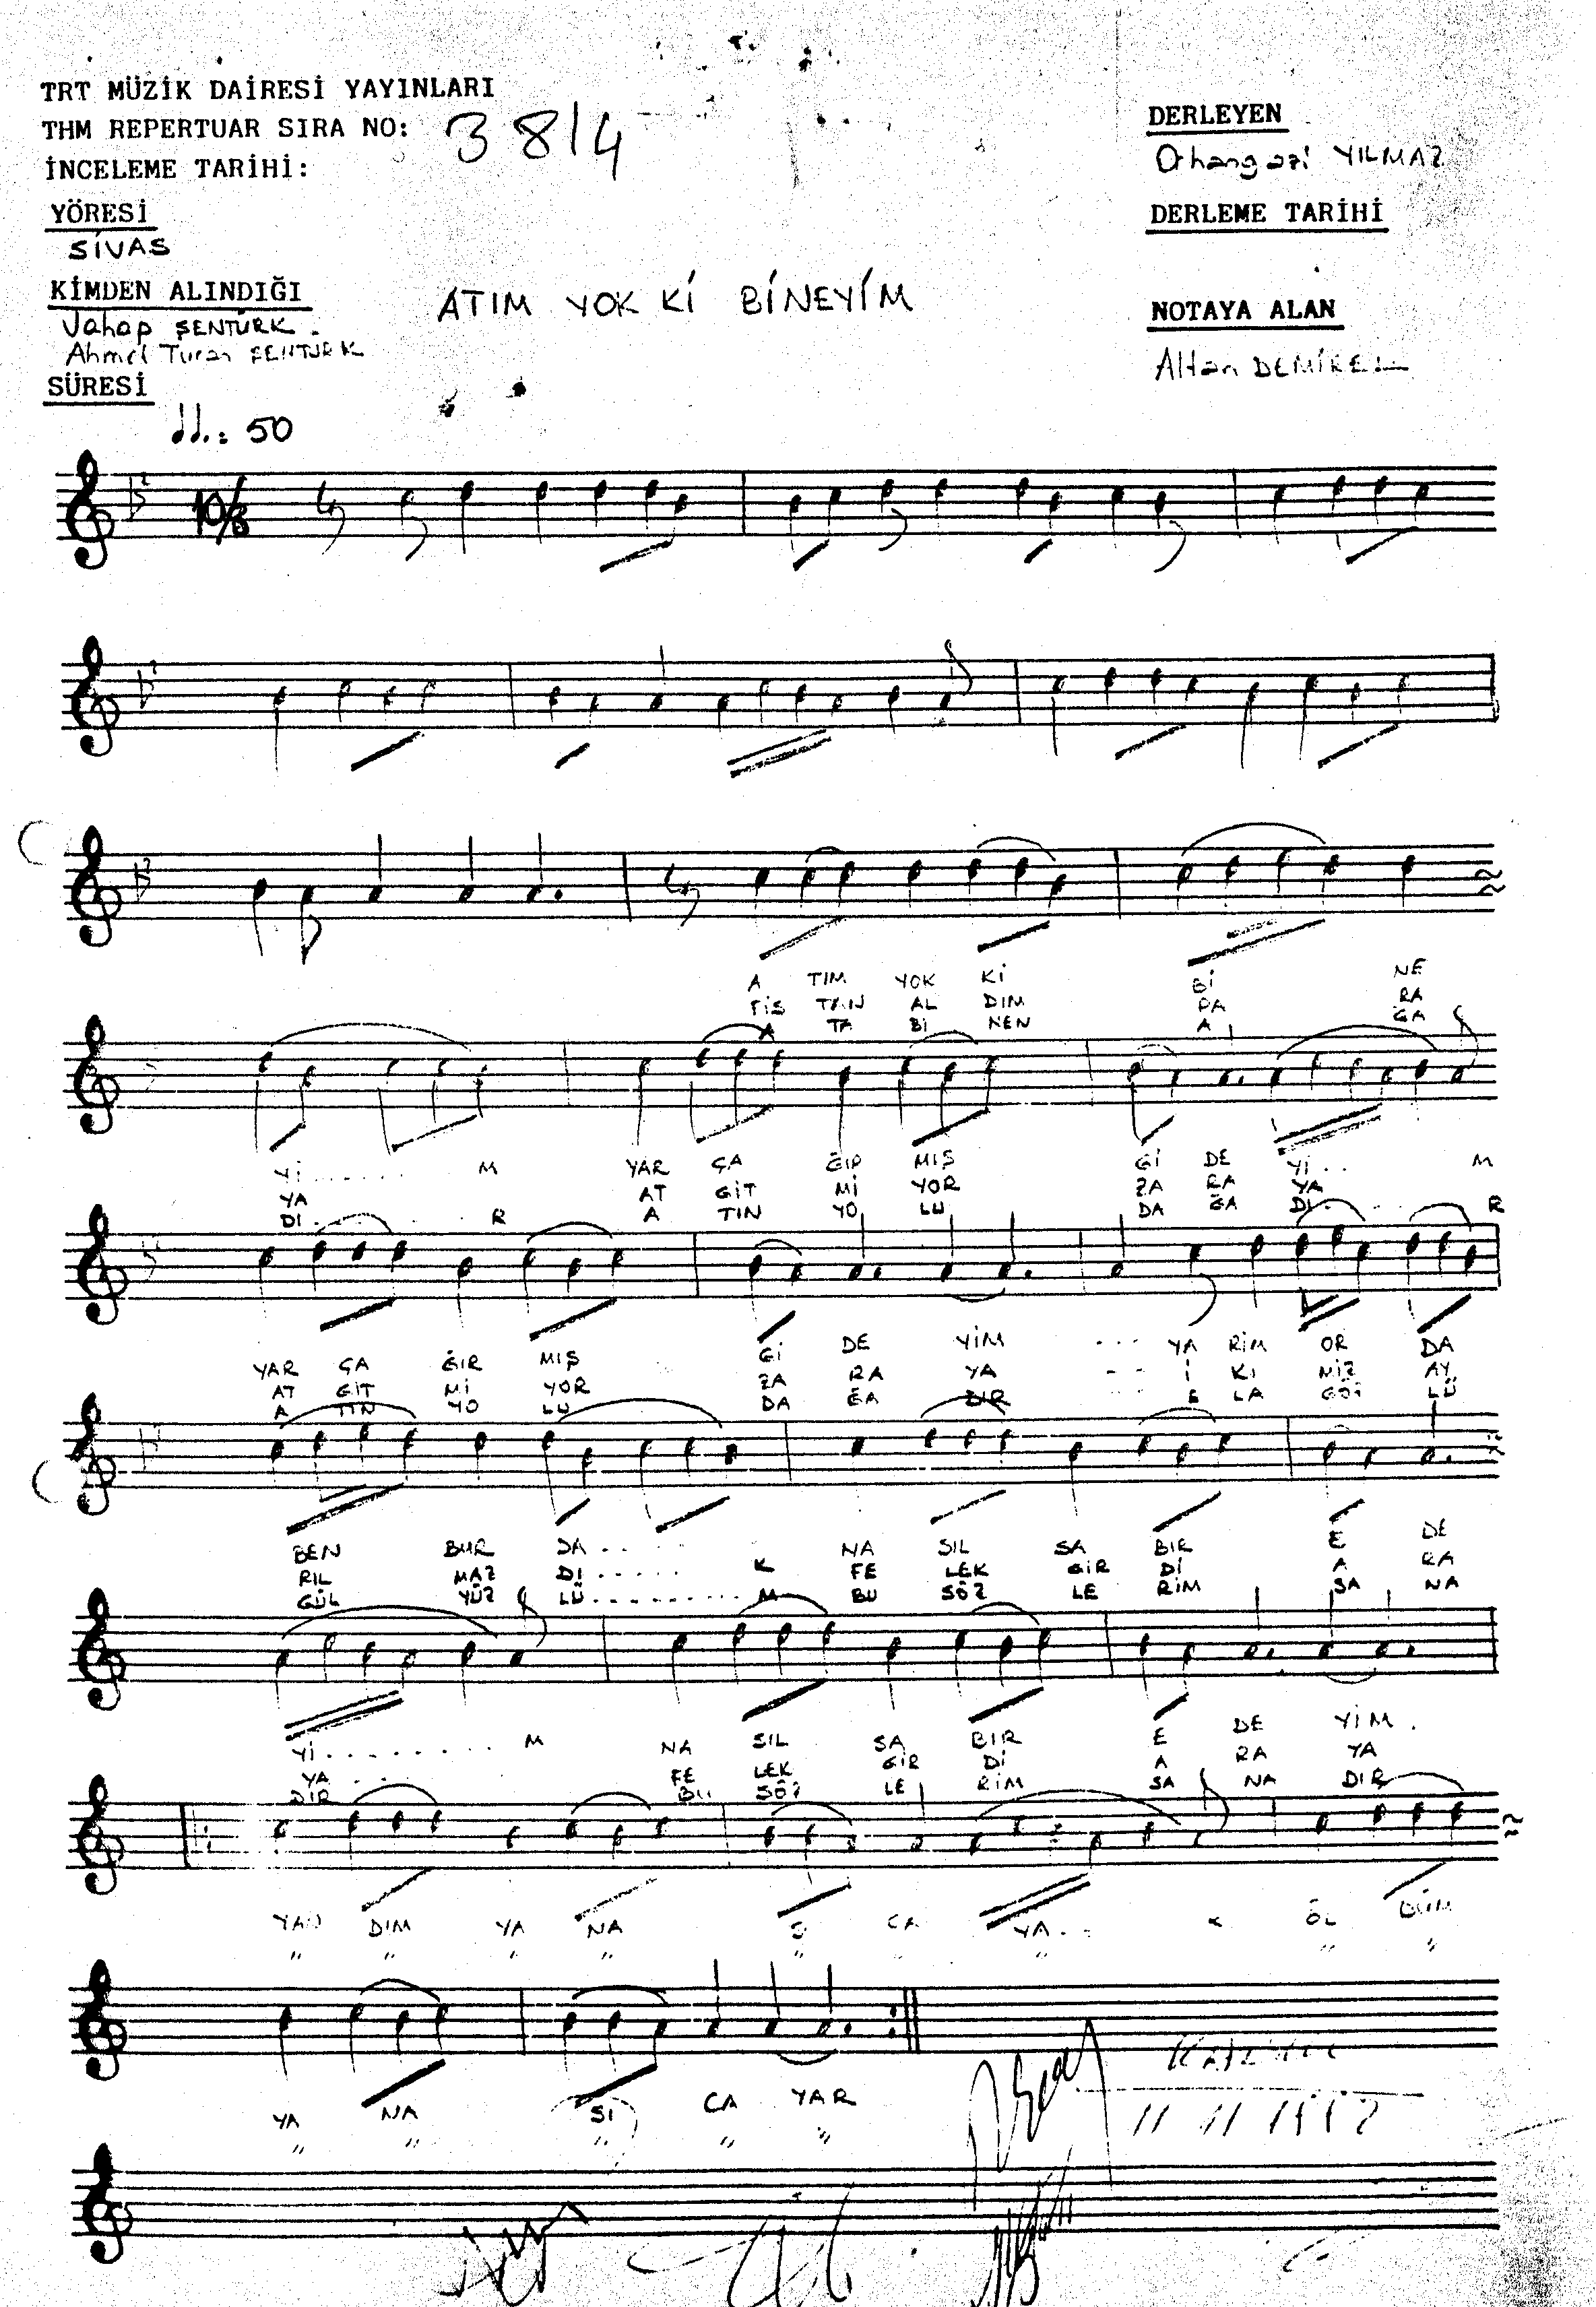 TRT MÜZİK DAİRESİ YAYINLARI
THM REPERTUAR SIRA NO: 3814
İNCELEME TARİHİ:
YÖRESİ
SİVAS
KİMDEN ALINDIĞI
Vahap ŞENTÜRK.
Ahmet Turan ŞENTÜRK
SÜRESİ
DERLEYEN
Orhangazi YILMAZ
DERLEME TARİHİ
NOTAYA ALAN
Altan DEMİREL
ATIM YOK Kİ BİNEYİM
: 50
10/8
A TIM YOK Kİ Bİ NE
FİS TAN AL DIM PA RA
A TA Bİ NEN A ĞA
Yİ....... M YAR ÇA ĞIR MIŞ Gİ DE Yİ.. M
YA AT GİT Mİ YOR ZA RA YA
DI....... R A TIN YO LU DA ĞA DI...... R
YAR ÇA ĞIR MIŞ Gİ DE YİM ... YA RİM OR DA
AT GİT Mİ YOR ZA RA YA -- İ Kİ MİZ AY
A TIN YO LU DA ĞA DIR ... E LA GÖZ LÜ
BEN BUR DA..... NA SIL SA BIR E DE
RIL MAZ DI..... K FE LEK GİR Dİ A RA
GÜL YÜZ LÜ......... M BU SÖZ LE RİM SA NA
Yİ......... M NA SIL SA BIR E DE YİM.
YA... FE LEK GİR Dİ A RA YA
DIR BU SÖZ LE RİM SA NA DIR
YAN DIM YA NA SI CA YA... K ÖL DÜM
" " " " " " " " "
YA NA SI CA YAR
" " " " "